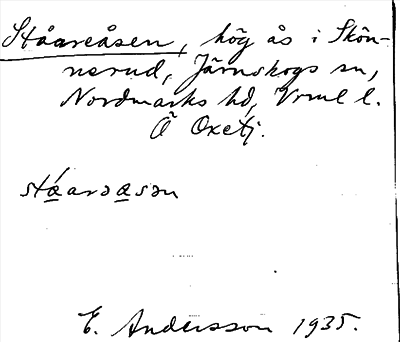 Ståareåsen, hög ås i Skön-
nerud, Järnskogs sn,
Nordmarks hd, Vrml l.
Ö Oxetj.
stǽarəæsən
E. Andersson 1935.